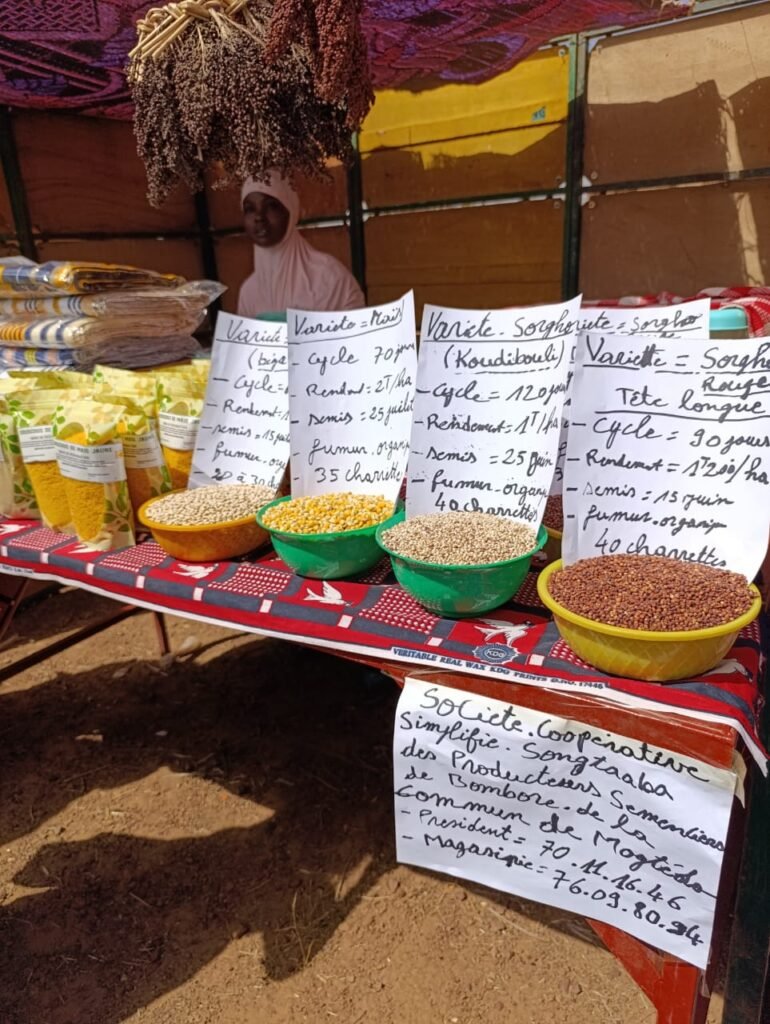 Variete
- Cycle =
- Rendement
- semis = 15
- fumur. orga
20 à 30
Variete = Maïs
- Cycle 70 jours
- Rendmt = 2T/ha
- semis = 25 juillet
- fumur. organi
35 charrettes
Variete. Sorgho
(Koudibouli)
- Cycle = 120 jour
- Rendement = 1T/ha
- semis = 25 juin
- fumur- organi
40 charrettes
riete = Sorgho
Variete = Sorgho
Rouge
Tête longue
- Cycle = 90 jours
- Rendemt = 1T200/ha
- semis = 15 juin
- fumur- organiq
40 charrettes
DE MAIS JAUNE
VERITABLE REAL WAX KDG PRINTS D.NO. 17446
KDG
Societe. Cooperative
Simplifie. Songtaaba
des Producteurs Semenciers
de Bombore. de la
Commun de Mogtédo
- President = 70.11.16.46
- Magasinie = 76.09.80.94